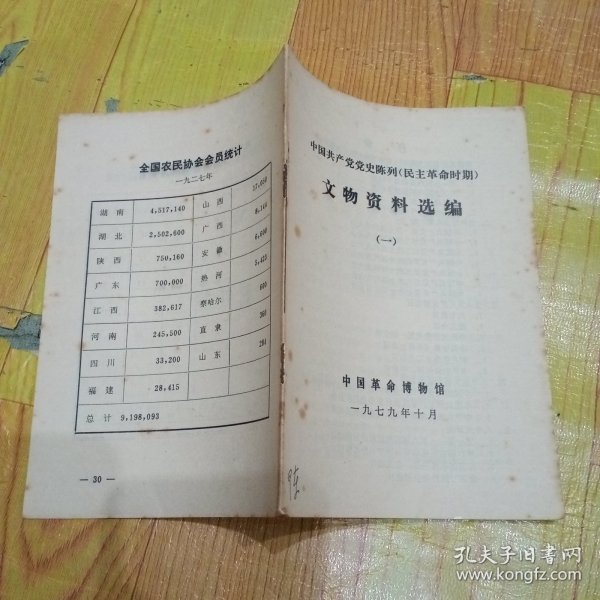 全国农民协会会员统计
一九二七年
湖南 4,517,140 山西 17,050
湖北 2,502,600 广西 8,144
陕西 750,160 安徽 6,600
广东 700,000 热河 5,423
江西 382,617 察哈尔 600
河南 245,500 直隶 360
四川 33,200 山东 284
福建 28,415
总计 9,198,093
— 30 —
中国共产党党史陈列(民主革命时期)
文物资料选编
(一)
中国革命博物馆
一九七九年十月
孔夫子旧书网
www.kongfz.com